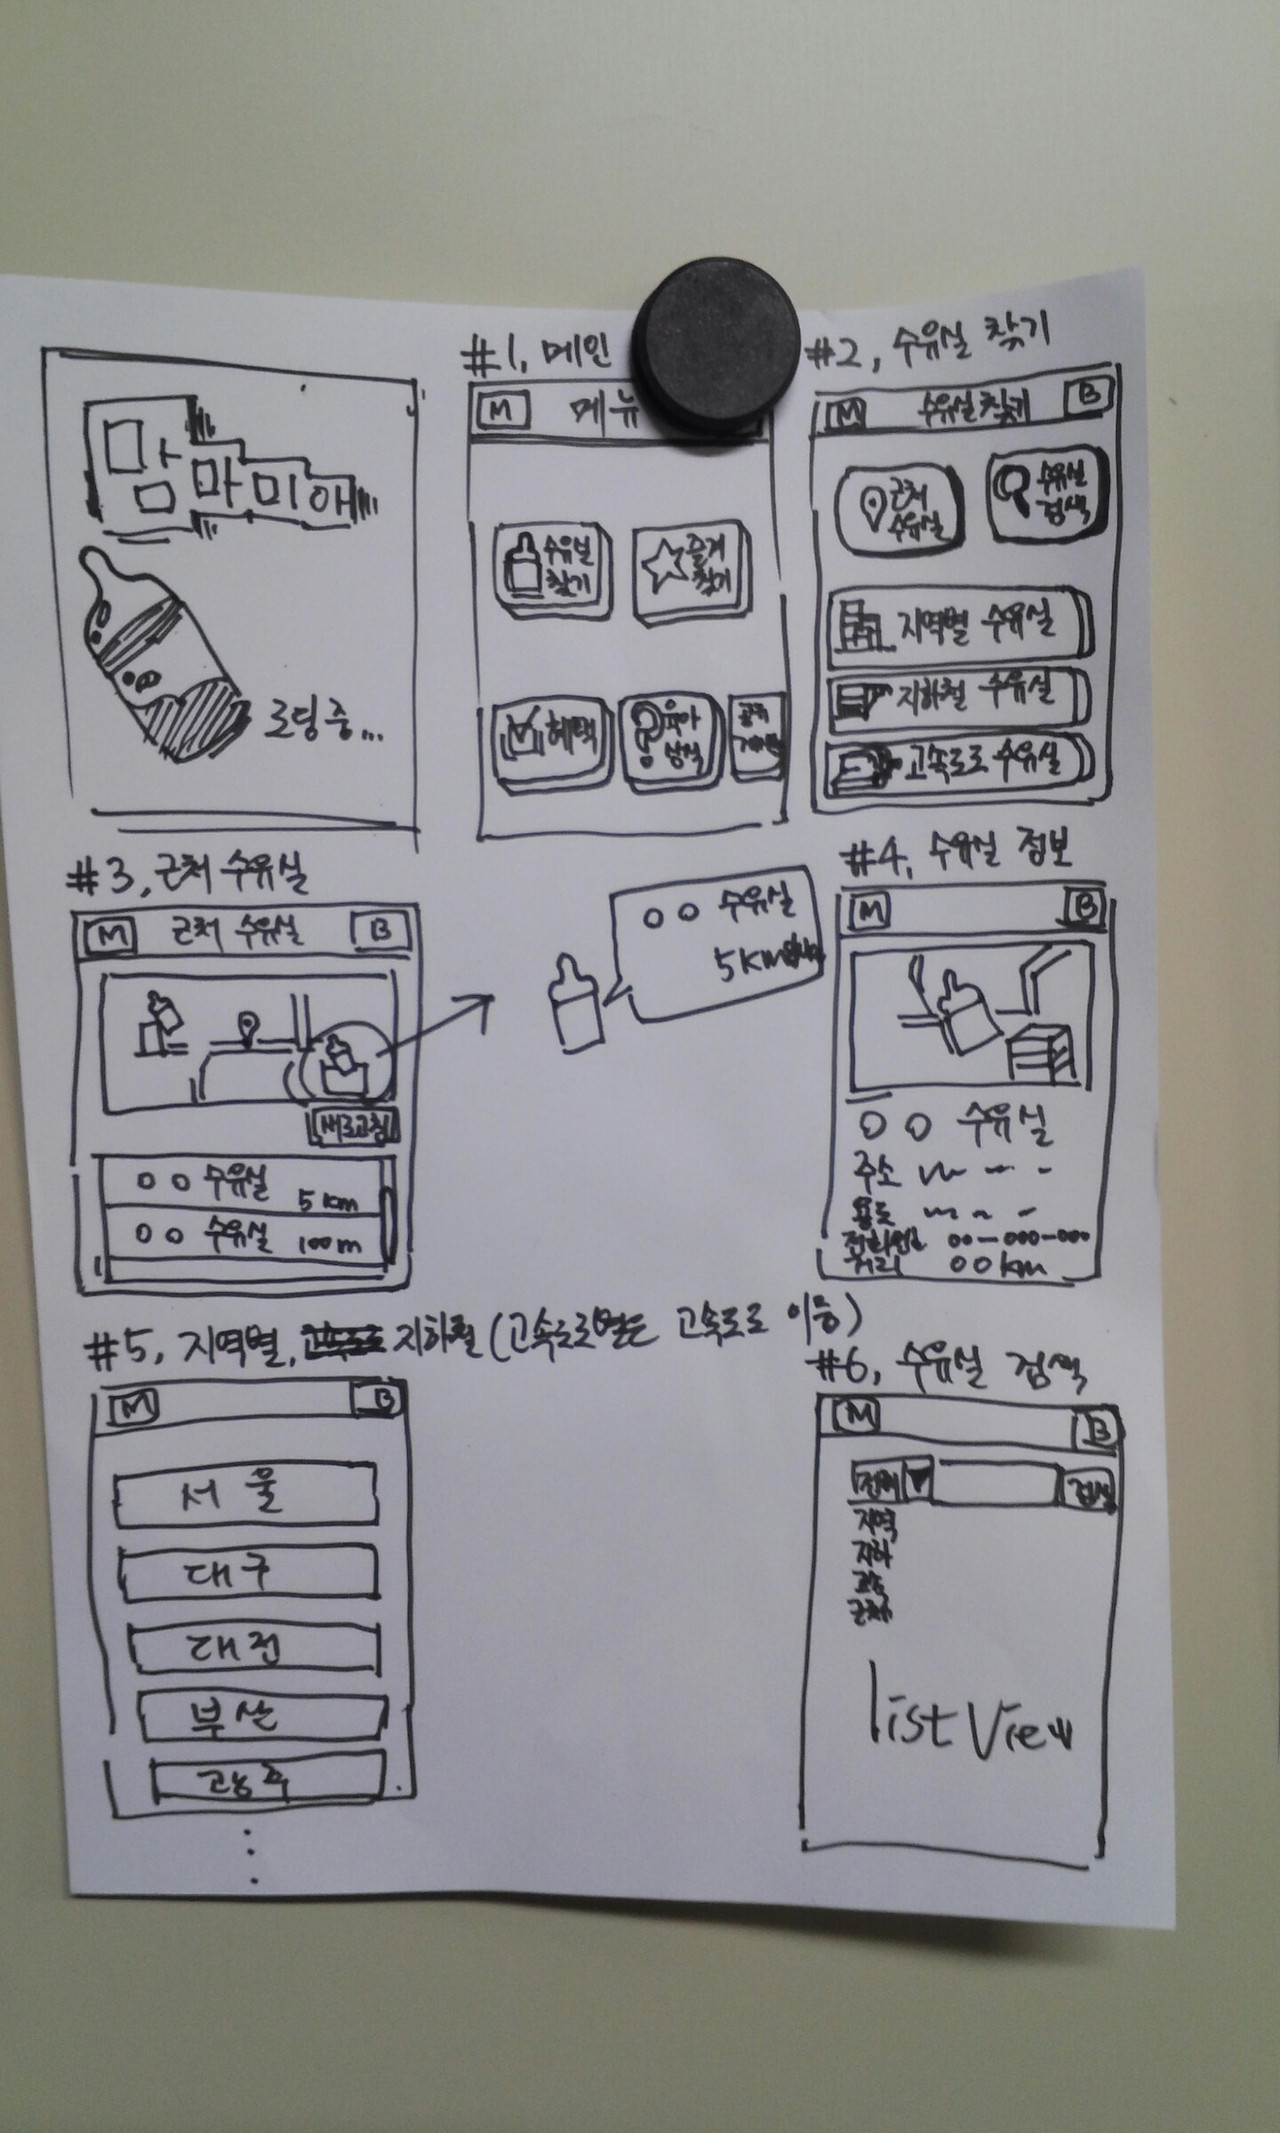 맘
마미아
로딩중...
#1, 메인
M 메뉴
수유실
찾기
즐겨
찾기
혜택
육아
상식
#2, 수유실 찾기
M 수유실 찾기 B
근처
수유실
수유실
검색
지역별 수유실
지하철 수유실
고속도로 수유실
#3, 근처 수유실
M 근처 수유실 B
새로고침
○○ 수유실 5km
○○ 수유실 100m
○○ 수유실
5km
#4, 수유실 정보
M B
○○ 수유실
주소
용도
전화번호 00-000-000
거리 00km
#5, 지역별, 지하철 (고속도로별은 고속도로 이동)
M B
서울
대구
대전
부산
광주
#6, 수유실 검색
M B
전체 ▼ 검색
지역
지하
고속
근처
list View